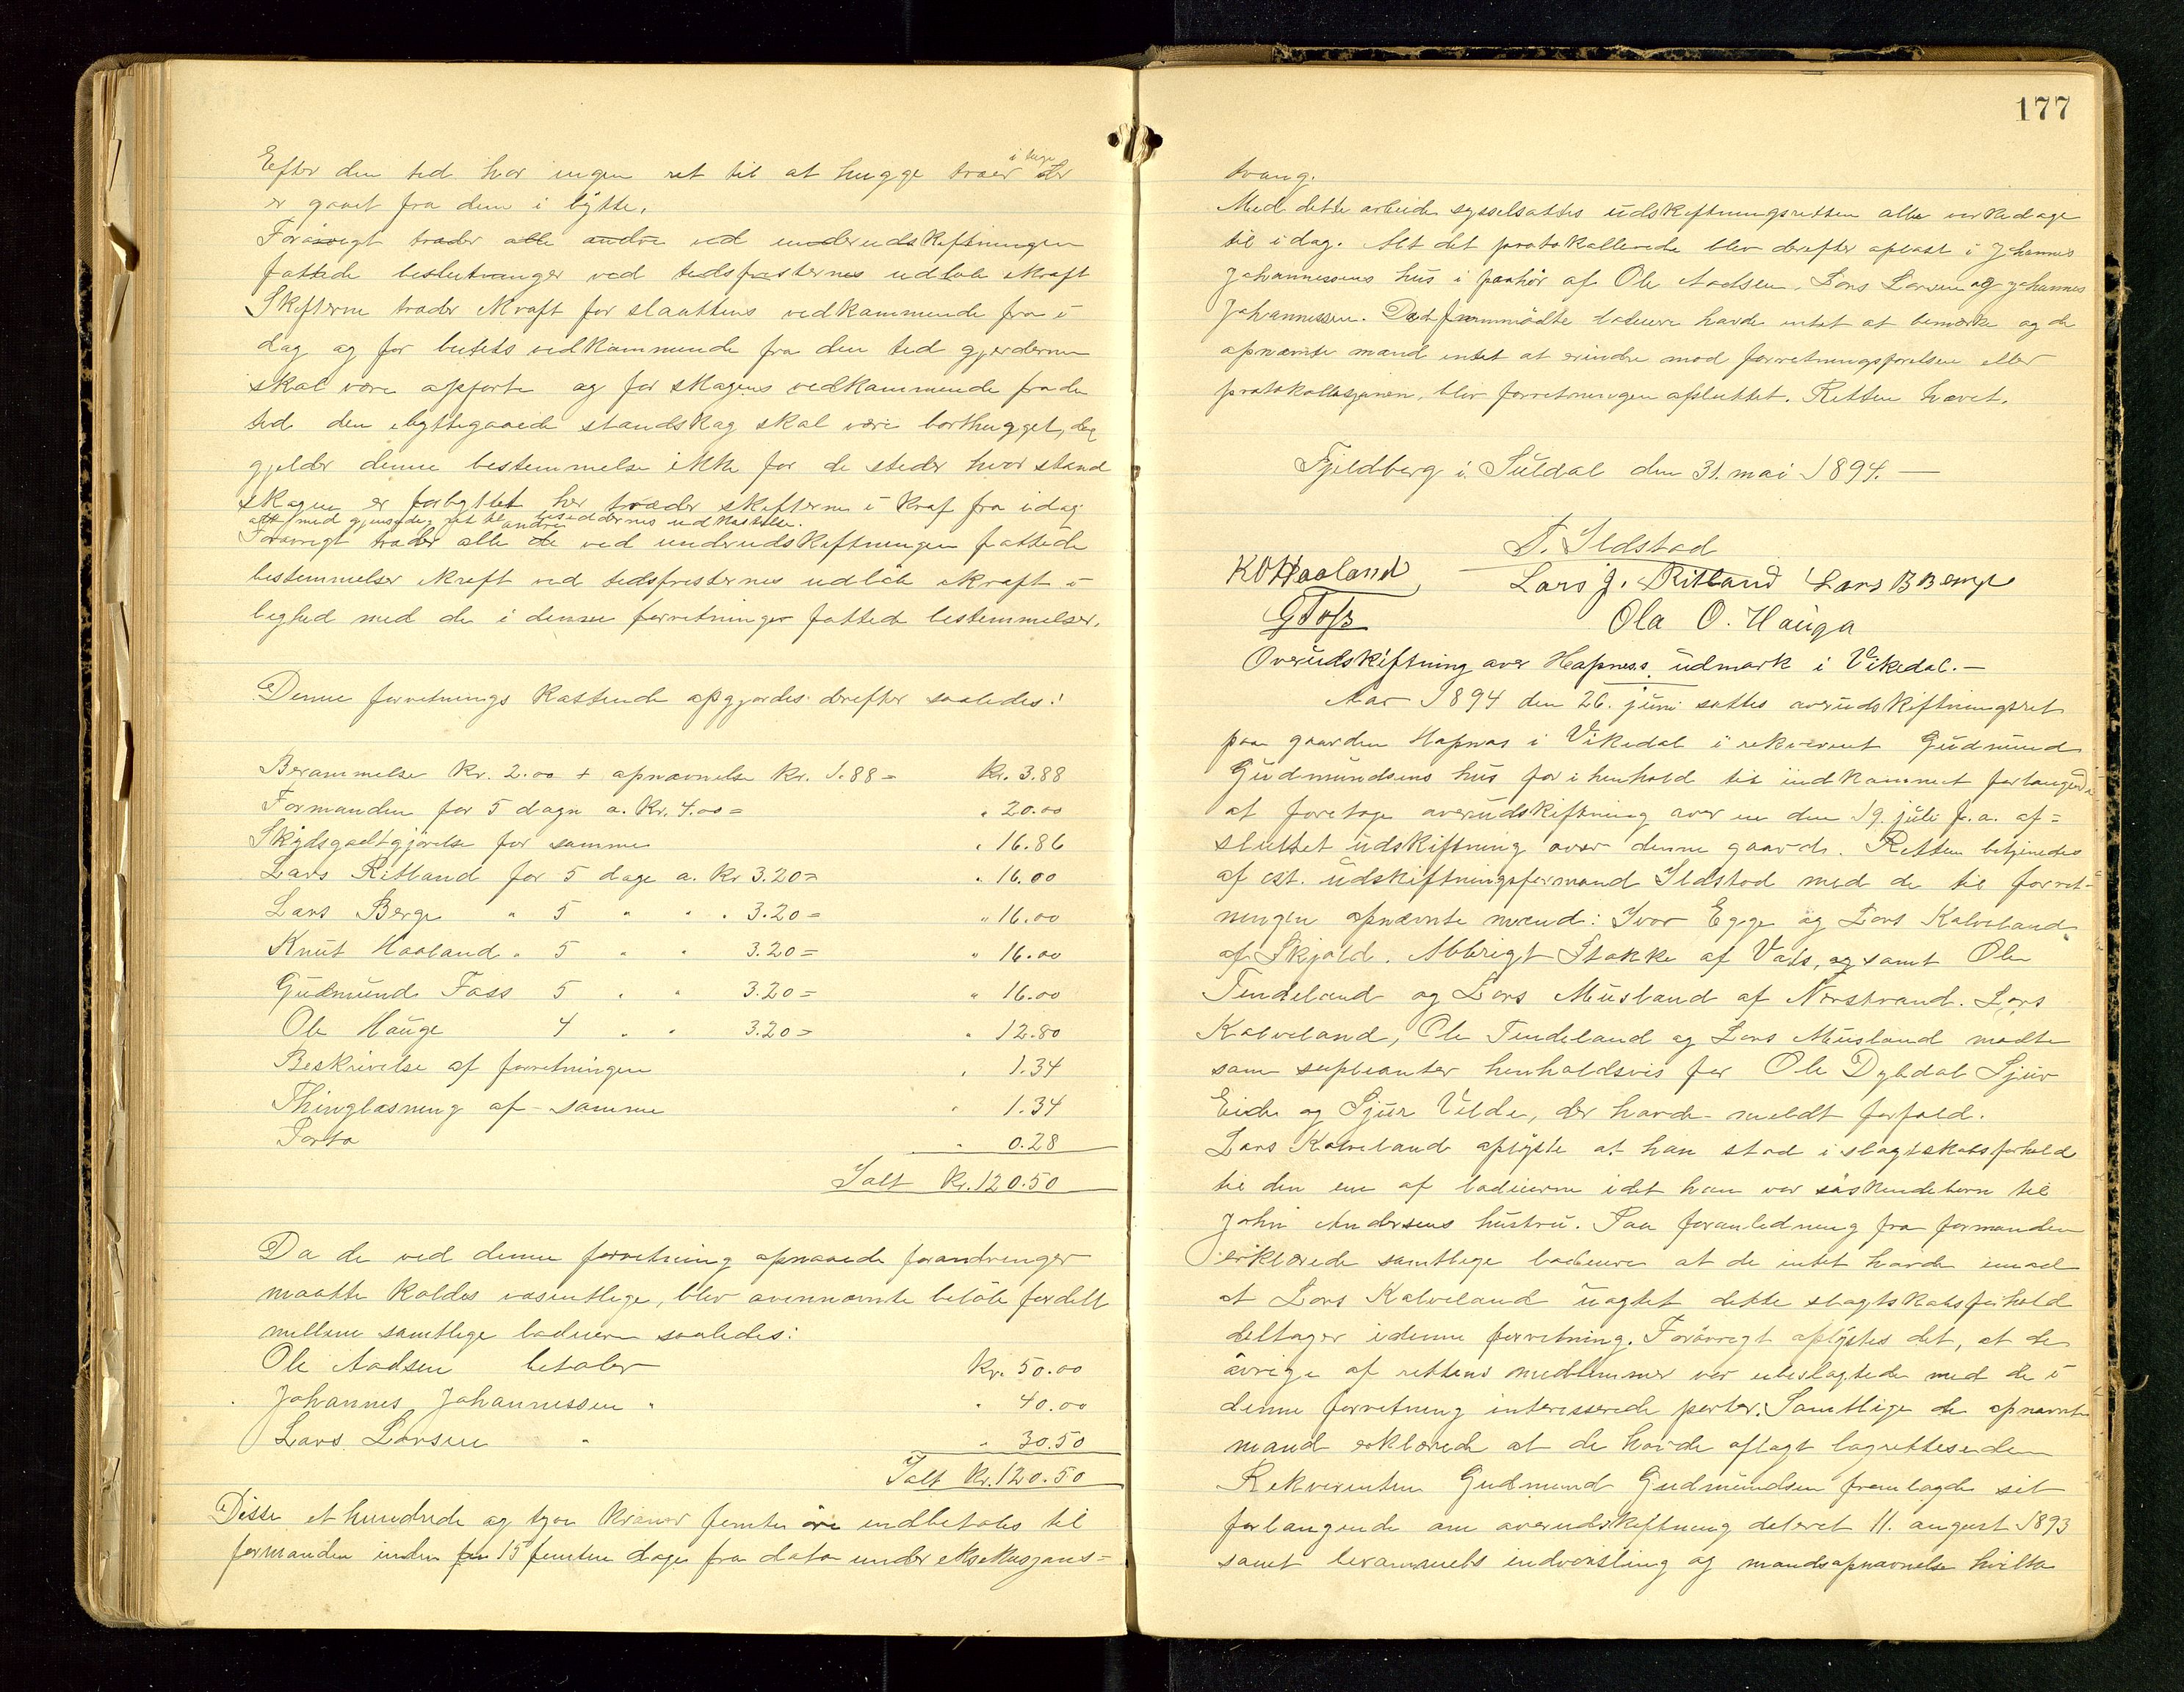 Efter den tid har ingen ret til at hugge træer i teige der
er gaaet fra dem i bytte.
Forøvrigt træder alle andre ved underudskiftningen
fattede beslutninger ved tidsfristernes udløb ikraft
Skifterne træder ikraft for slaattens vedkommende fra i
dag og for beitets vedkommende fra den tid gjerderne
skal være opførte og for skogens vedkommende fra den
tid den ibyttegaaede standskog skal være borthugget, dog
gjelder denne bestemmelse ikke for de steder hvor stand
skogen er forbyttet her træder skifterne i kraf fra idag
alt med gjensidig ret til besiddernes udkastelse.
Forøvrigt træder alle de andre ved underudskiftningen fattede
bestemmelser ikraft ved tidsfristernes udløb ikraft i
lighed med de i denne forretninger fattede bestemmelser.
Denne forretnings kostende opgjordes derefter saaledes:
Berammelse kr. 2.00 + opnævnelse kr. 1.88 = kr. 3.88
Formanden for 5 dage a. kr. 4.00 = " 20.00
Skydsgodtgjørelse for samme " 16.86
Lars Ritland for 5 dage a. kr 3.20 = " 16.00
Lars Berge " 5 " " " 3.20 = " 16.00
Knut Haaland " 5 " " 3.20 = " 16.00
Gudmund Foss 5 " " 3.20 = " 16.00
Ole Hauge 4 " " 3.20 = " 12.80
Beskrivelse af forretningen " 1.34
Thinglæsning af samme " 1.34
Porto " 0.28
Ialt kr. 120.50
Da de ved denne forretning opnaaede forandringer
maatte kaldes væsentlige, blev ovennævnte beløb fordelt
mellem samtlige lodeiere saaledes:
Ole Aadsen betaler kr. 50.00
Johannes Johannessen " " 40.00
Lars Larsen " " 30.50
Ialt kr. 120.50
Disse et hundrede og tyve kroner femti øre indbetales til
formanden inden 15 femten dage fra dato under eksekusjons=
177
tvang.
Med dette arbeide sysselsattes udskiftningsretten alle virkedage
til idag. Alt det protokollerede blev derefter oplæst i Johannes
Johannessens hus i paahør af Ole Aadsen, Lars Larsen og Johannes
Johannessen. Da de fremmødte lodeiere havde intet at bemærke og de
opnævnte mænd intet at erindre mod forretningsførelsen eller
protokollasjonen, blev forretningen afsluttet. Retten hævet.
Fjeldberg i Suldal den 31. mai 1894. —
T. Ildstad
KO Haaland Lars J. Ritland Lars B Berge
G Foss Ola O. Hauga
Overudskiftning over Hapnes. udmark i Vikedal. —
Aar 1894 den 26. juni sattes overudskiftningsret
paa gaarden Hapnes i Vikedal i rekvirent Gudmund
Gudmundsens hus for i henhold til indkommet forlangende
at foretage overudskiftning over en den 19. juli f.a. af=
sluttet udskiftning over denne gaard. Retten betjenedes
af cst. udskiftningsformand Ildstad med de til forret-
ningen opnævnte mænd: Ivar Egge og Lars Kalveland
af Skjold. Abbrigt Stakke af Vats, og samt Ole
Tendeland og Lars Musland af Nerstrand. Lars
Kalveland, Ole Tendeland og Lars Musland mødte
som supleanter henholdsvis for Ole Dybdal Sjur
Eide og Sjur Velde, der havde meldt forfald.
Lars Kalveland oplyste at han stod i slagtskabsforhold
til den ene af lodeierne idet han var søskendebarn til
John Andersens hustru. Paa foranledning fra formanden
erklærede samtlige lodeiere at de intet havde imod
at Lars Kalveland uagtet dette slagtskabsforhold
deltager i denne forretning. Forøvrigt oplystes det, at de
øvrige af rettens medlemmer var ubeslagtede med de i
denne forretning interesserede parter. Samtlige de opnævnte
mænd erklærede at de havde aflagt lagretteseden
Rekvirenten Gudmund Gudmundsen fremlagde sit
forlangende om overudskiftning dateret 11. august 1893
samt berammels indvarsling og mandsopnævnelse hvilke